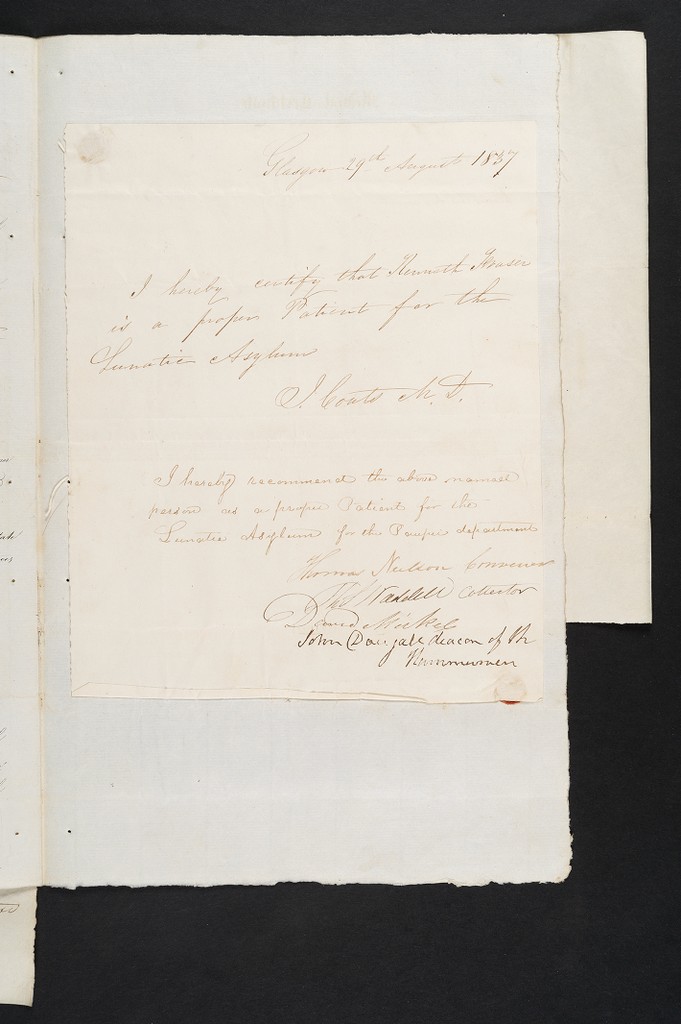 Glasgow 29th August 1837
I hereby certify that Kenneth Fraser
is a proper Patient for the
Lunatic Asylum
J. Couts M.D.
I hereby recommend the above named
person as a proper Patient for the
Lunatic Asylum for the Pauper department
Thomas Neilson Convener
Waddell Collector
David Mickel
John Dalgate deacon of th
Hammermen